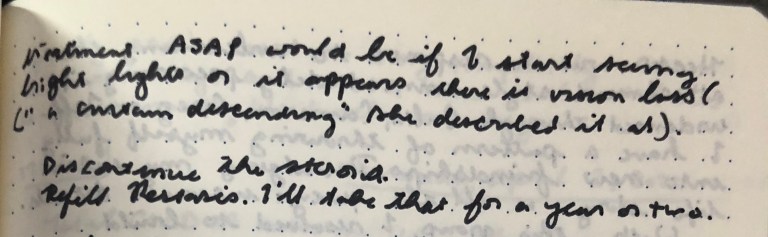 ASAP would be if I start seeing
bright lights or it appears there is vision loss (
(" a curtain descending" she described it as).
Discontinue the steroid.
Refill Restasis. I'll take that for a year or two.